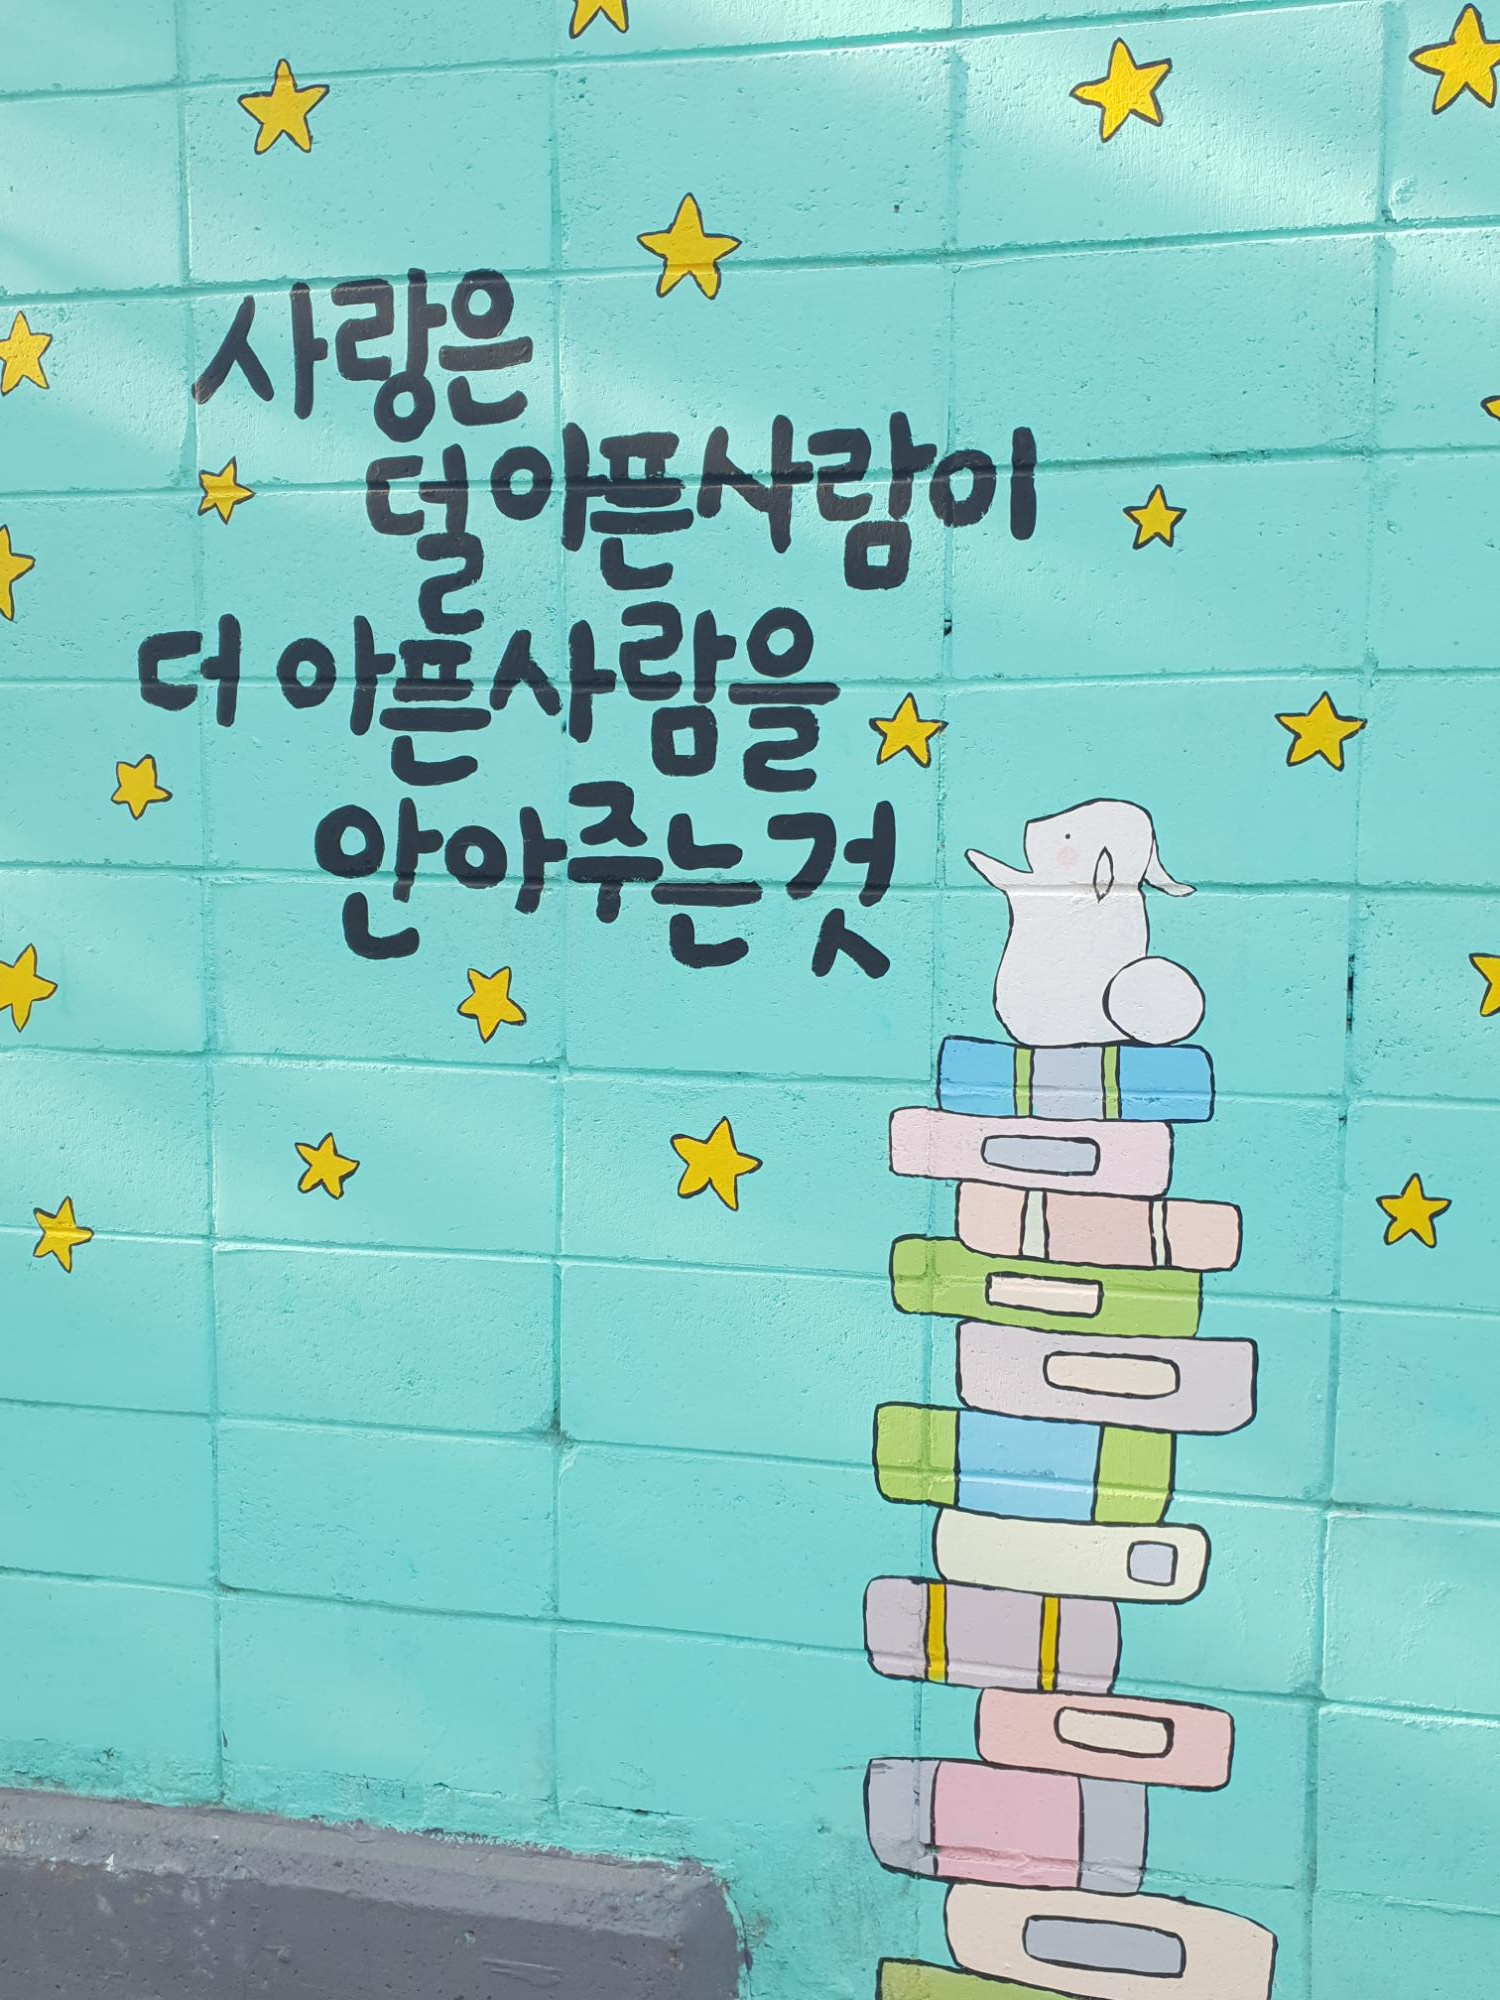 사랑은
덜 아픈 사람이
더 아픈 사람을
안아주는 것